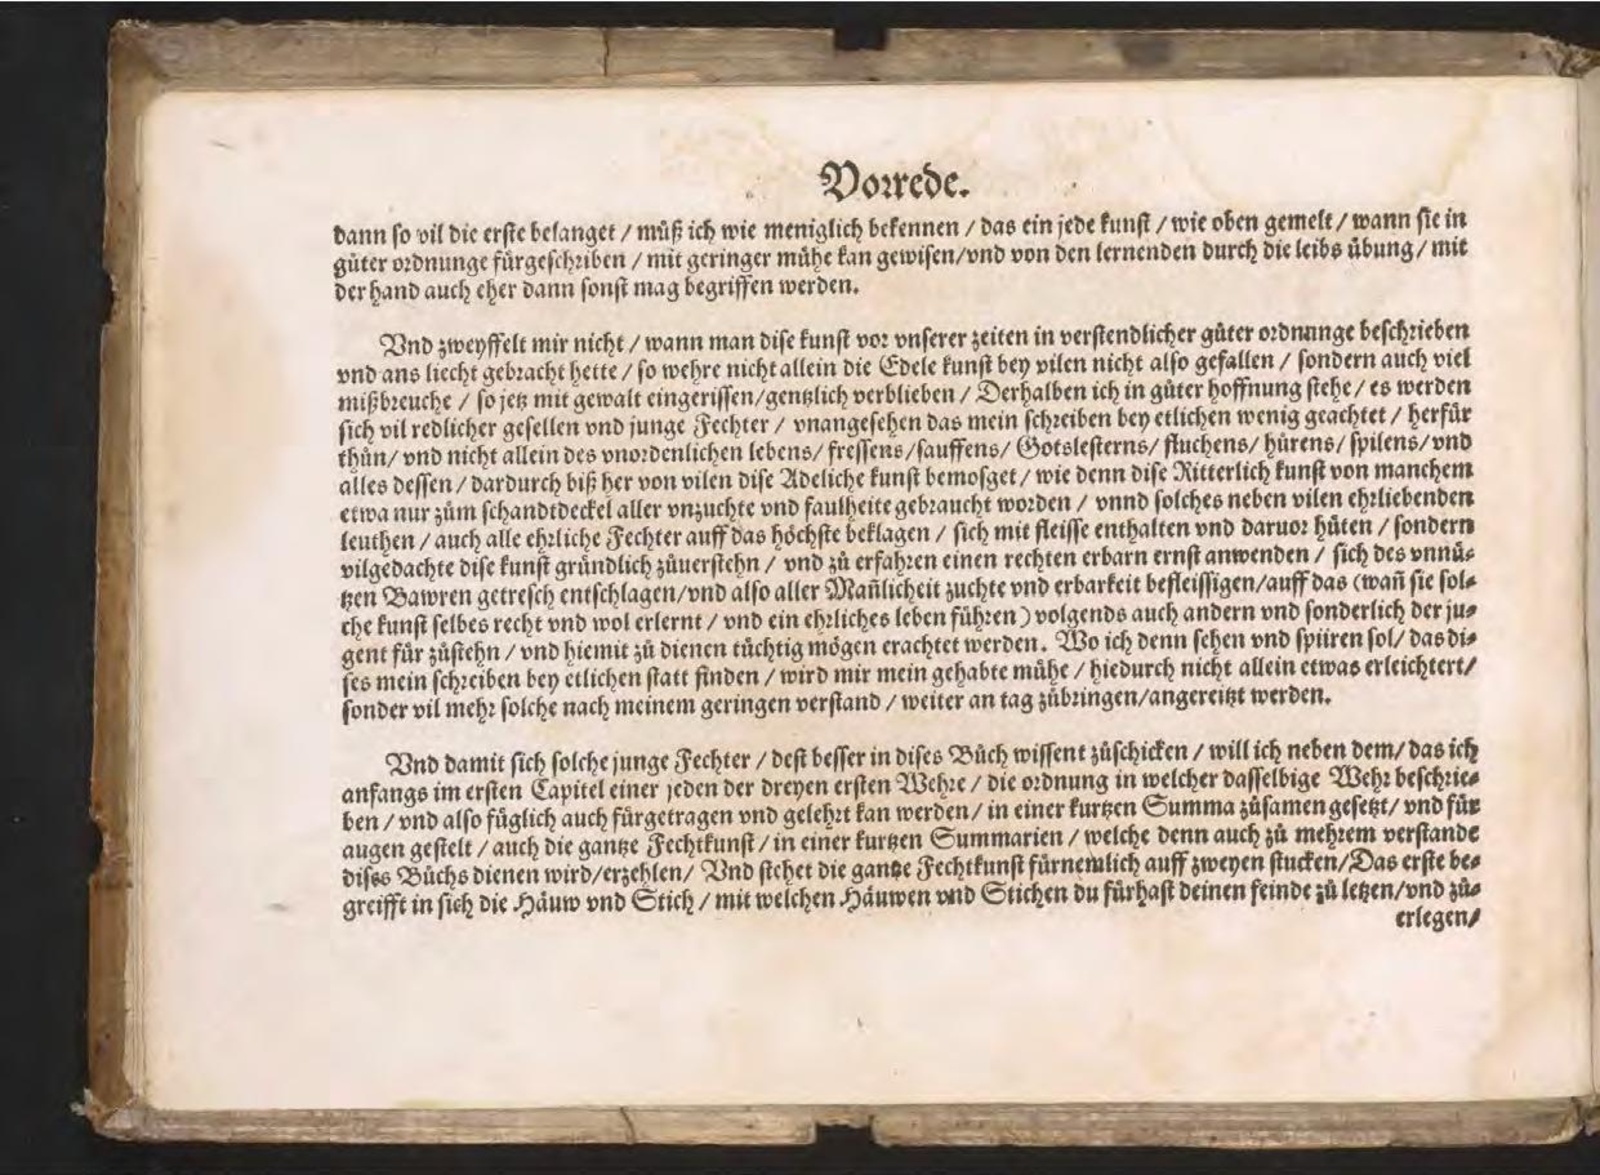 Vorrede.
dann so vil die erste belanget / můß ich wie meniglich bekennen / das ein jede kunst / wie oben gemelt / wann sie in
gůter ordnunge fürgeschriben / mit geringer mühe kan gewisen/vnd von den lernenden durch die leibs übung / mit
der hand auch eher dann sonst mag begriffen werden.
Vnd zweyffelt mir nicht / wann man dise kunst vor vnserer zeiten in verstendlicher gůter ordnunge beschrieben
vnd ans liecht gebracht hette / so wehre nicht allein die Edele kunst bey vilen nicht also gefallen / sondern auch viel
mißbreuche / so jetz mit gewalt eingerissen/gentzlich verblieben / Derhalben ich in gůter hoffnung stehe / es werden
sich vil redlicher gesellen vnd junge Fechter / vnangesehen das mein schreiben bey etlichen wenig geachtet / herfür
thůn/ vnd nicht allein des vnordenlichen lebens/ fressens/sauffens/ Gotslesterns/ fluchens/ hůrens/ spilens/vnd
alles dessen / dardurch biß her von vilen dise Adeliche kunst bemosget / wie denn dise Ritterlich kunst von manchem
etwa nur zům schandtdeckel aller vnzuchte vnd faulheite gebraucht worden / vnnd solches neben vilen ehrliebenden
leuthen / auch alle ehrliche Fechter auff das höchste beklagen / sich mit fleisse enthalten vnd daruor hüten / sondern
vilgedachte dise kunst gründlich zůuerstehn / vnd zů erfahren einen rechten erbarn ernst anwenden / sich des vnnü⸗
tzen Bawren getresch entschlagen/vnd also aller Mañlicheit zuchte vnd erbarkeit befleissigen/auff das (wañ sie sol⸗
che kunst selbes recht vnd wol erlernt / vnd ein ehrliches leben führen) volgends auch andern vnd sonderlich der ju⸗
gent für zůstehn / vnd hiemit zů dienen tüchtig mögen erachtet werden. Wo ich denn sehen vnd spüren sol/ das di⸗
ses mein schreiben bey etlichen statt finden / wird mir mein gehabte mühe / hiedurch nicht allein etwas erleichtert/
sonder vil mehr solche nach meinem geringen verstand / weiter an tag zůbringen/angereitzt werden.
Vnd damit sich solche junge Fechter / dest besser in dises Bůch wissent zůschicken / will ich neben dem/ das ich
anfangs im ersten Capitel einer jeden der dreyen ersten Wehre / die ordnung in welcher dasselbige Wehr beschrie⸗
ben / vnd also füglich auch fürgetragen vnd gelehrt kan werden / in einer kurtzen Summa zůsamen gesetzt/ vnd für
augen gestelt / auch die gantze Fechtkunst / in einer kurtzen Summarien / welche denn auch zů mehrem verstande
dises Bůchs dienen wird/erzehlen/ Vnd stehet die gantze Fechtkunst fürnemlich auff zweyen stucken/Das erste be⸗
greifft in sich die Häuw vnd Stich / mit welchen Häuwen vnd Stichen du fürhast deinen feinde zů letzen/vnd zů⸗
erlegen/